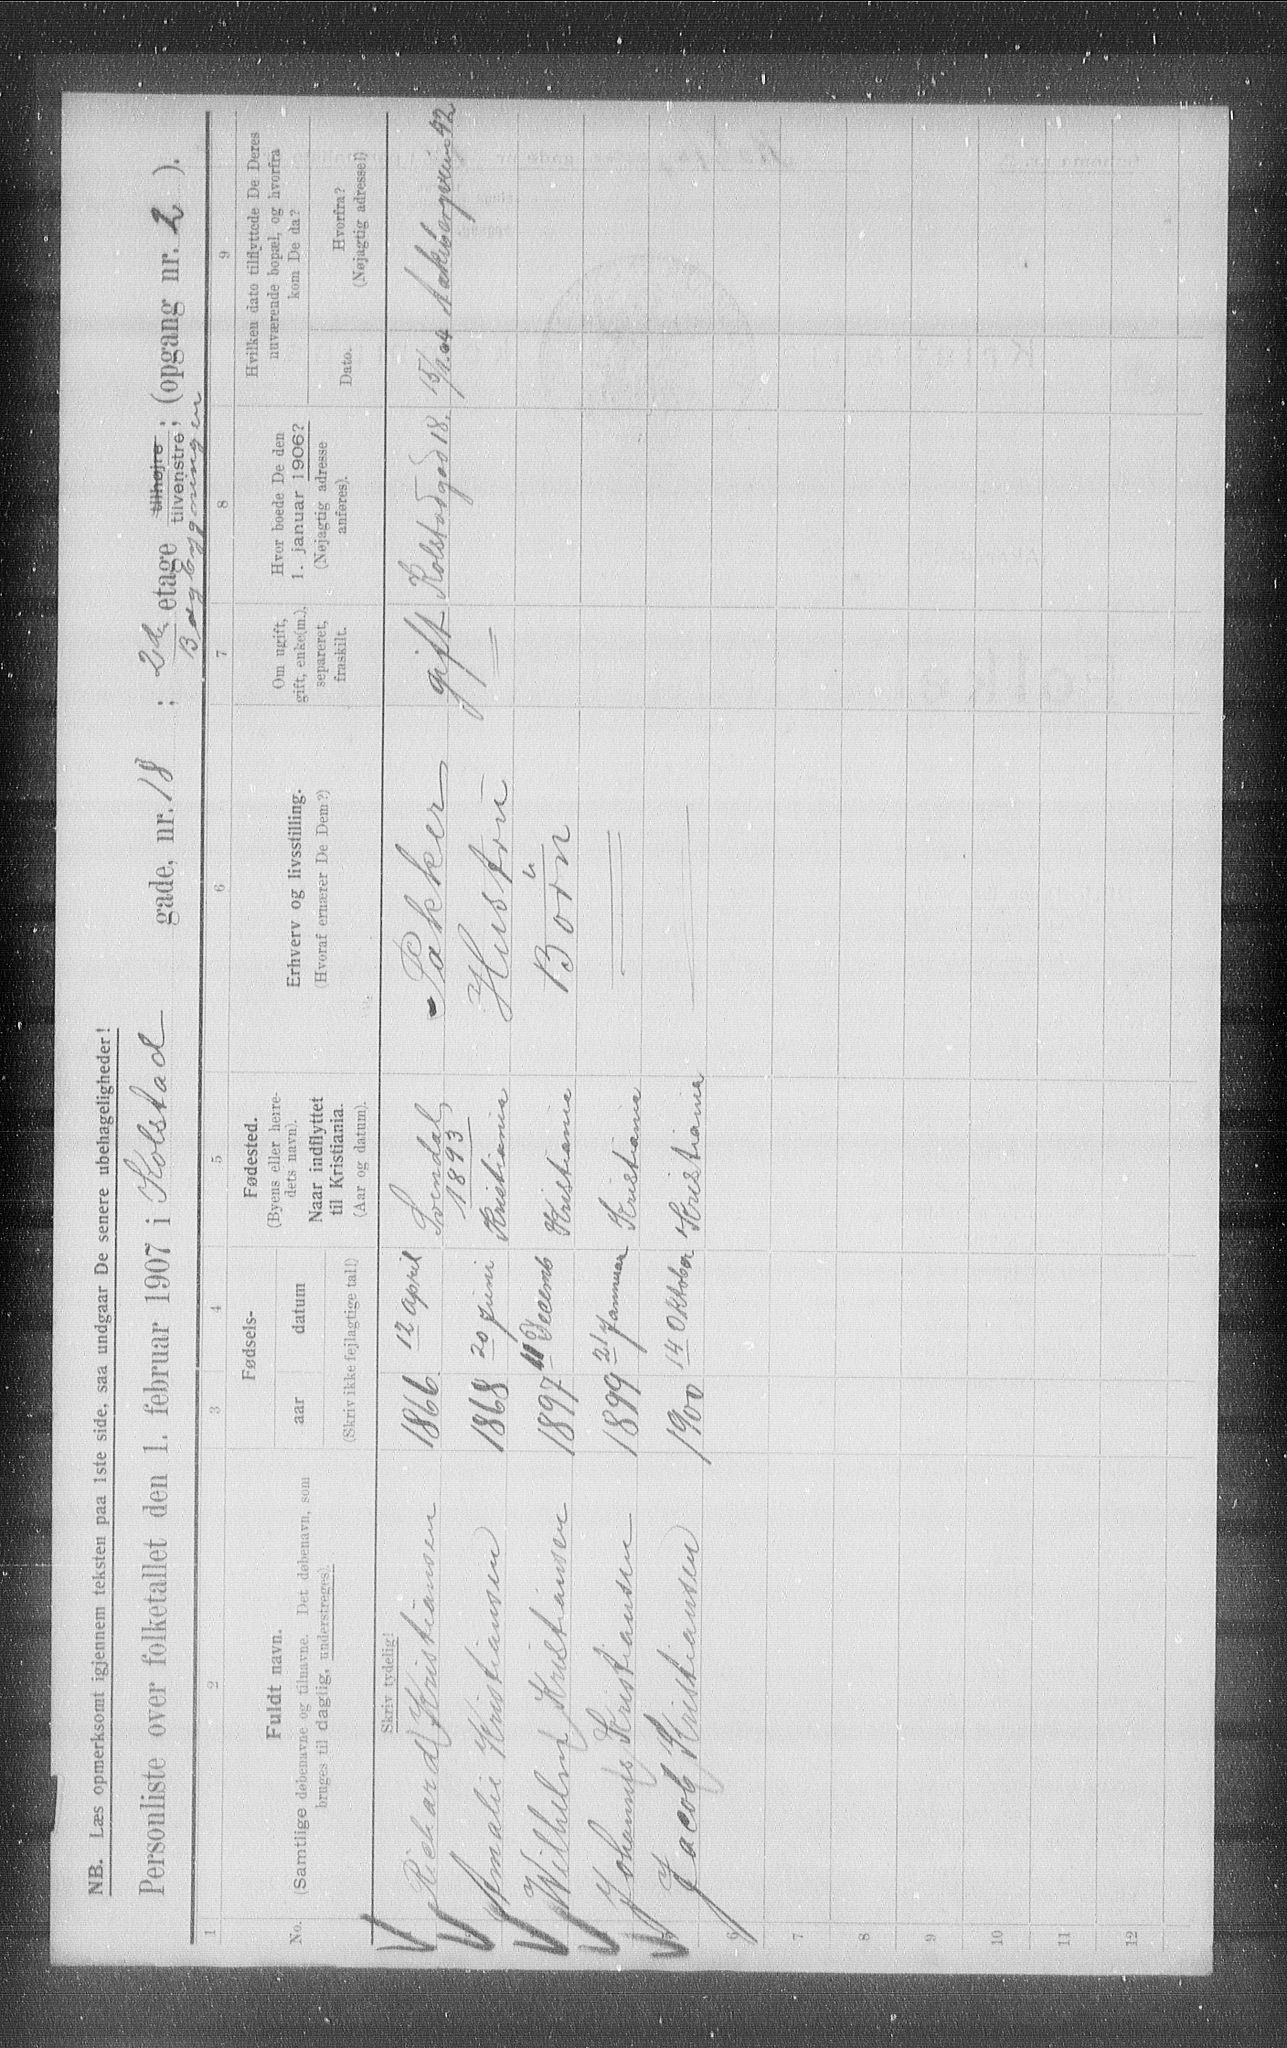 NB. Læs opmerksomt igjennem teksten paa 1ste side, saa undgaar De senere ubehageligheder!
Personliste over folketallet den 1. februar 1907 i Kolstad gade, nr. 18 ; 2de etage tilhøjre tilvenstre; (opgang nr. 2 ).
Bagbygningen
1 2 3 4 5 6 7 8 9
No.
Fuldt navn.
(Samtlige døbenavne og tilnavne. Det døbenavn, som
bruges til daglig, understreges).
Fødsels-
aar datum
(Skriv ikke fejlagtige tal!)
Fødested.
(Byens eller herre-
dets navn).
Naar indflyttet
til Kristiania.
(Aar og datum).
Erhverv og livsstilling.
(Hvoraf ernærer De Dem?)
Om ugift,
gift, enke(m.),
separeret,
fraskilt.
Hvor boede De den
1. januar 1906?
(Nøjagtig adresse
anføres).
Hvilken dato tilflyttede De Deres
nuværende bopæl, og hvorfra
kom De da?
Dato.
Hvorfra?
(Nøjagtig adresse!)
Skriv tydelig!
Richard Kristiansen 1866 12 april Svendal, Pakker gift Kolstadgad 18. Aakebergveien 42
1893
Amalie Kristiansen 1868 20 juni Kristiania Hustru
Wilhelm Kristiansen 1897 Decemb Kristiania Börn
Johannes Kristiansen 1899 21 Januar Kristiania
5 Jacob Kristiansen 1900 14 Oktober Kristiania
6
7
8
9
10
11
12